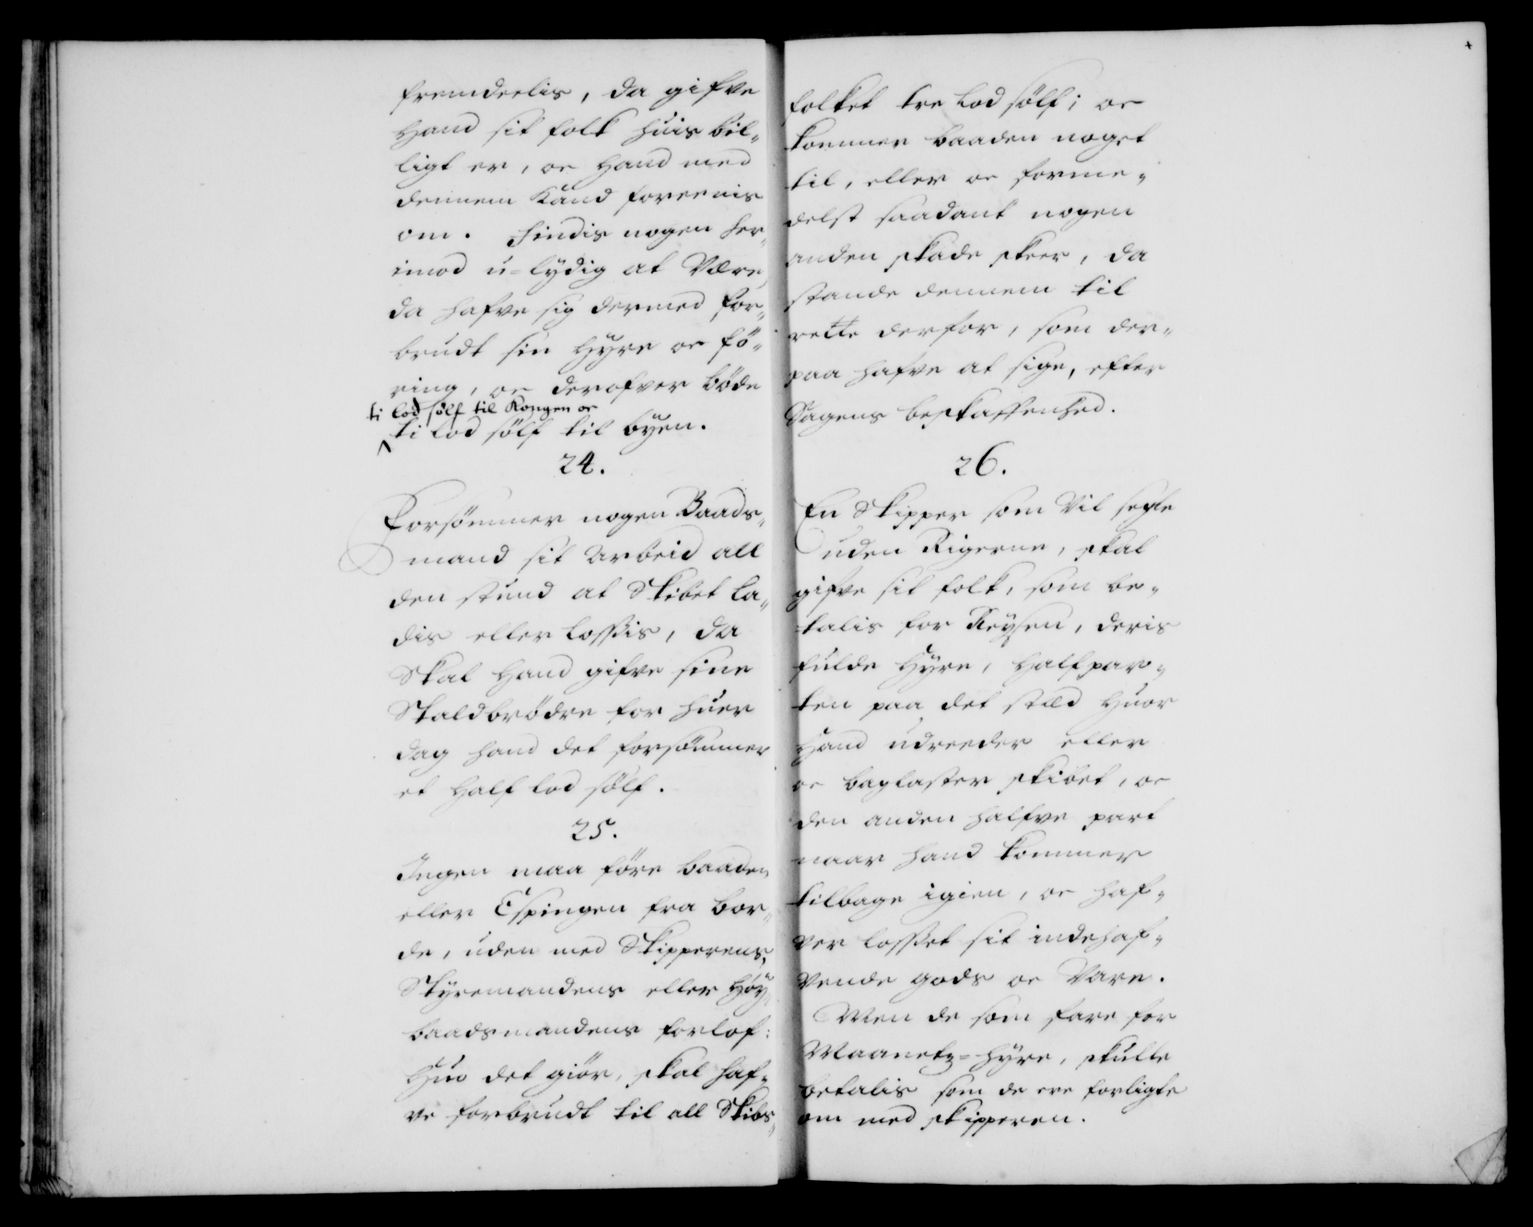 fremdeelis, da gifve
Hand sit folk huis bil-
ligt er, oc Hand med
dennem Kand foreenis
om. Findis nogen her-
imod u-lydig at Være,
da hafve sig dermed for-
brudt sin Hyre oc fö-
ring, oc derofver böde
ti lod sölf til Kongen oc
ti lod sölf til byen.
24.
Forsömmer nogen Baads-
mand sit Arbeid all
den stund at Skibet la-
dis eller lossis, da
Skal Hand gifve sine
Staldbrödre for huer
dag hand det forsömmer
et Half lod sölf.
25.
Ingen maa före baaden
eller Espingen fra bor-
de, uden med Skipperens,
Styremandens eller Höy-
baadsmandens forlof:
Huo det giör, skal haf-
ve forbrudt til all Skibs-
folket tre lod sölf; oc
kommer baaden noget
til, eller oc forme-
delst saadant nogen
anden skade skeer, da
stande dennem til
rette derfor, som der-
paa hafve at sige, efter
Sagens beskaffenhed.
26.
En Skipper som Vil segle
uden Rigerne, skal
gifve sit folk, som be-
talis for Reysen, deris
fulde Hyre, Halfpar-
ten paa det stæd Huor
Hand udreeder eller
oc baglaster skibet, oc
den anden halfve part
naar hand kommer
tilbage igien, oc haf-
ver losset sit indehaf-
vende gods oc Vare.
Men de som fare for
Maanetz-Hyre, skulle
betalis som de ere forligte
om med skipperen.